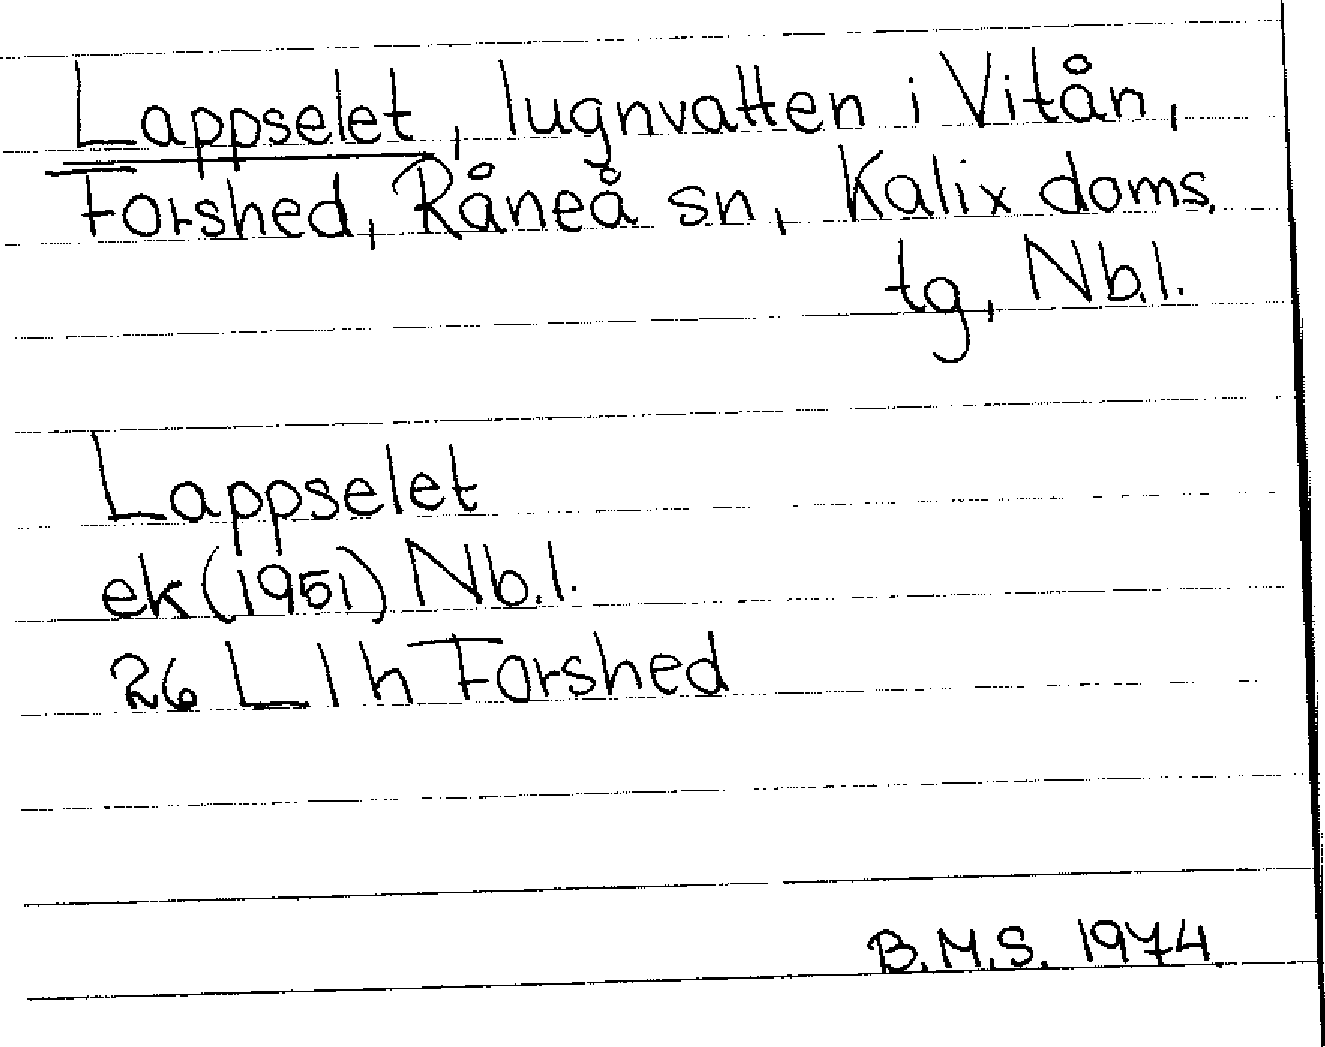 Lappselet, lugnvatten i Vitån,
Forshed, Råneå sn, Kalix doms.
tg, Nb.l.
Lappselet
ek (1951) Nb.l.
26 L 1 h Forshed
B.M.S. 1974